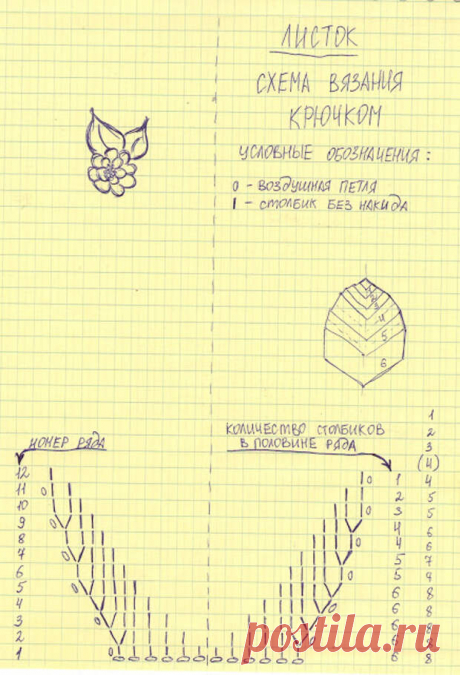 ЛИСТОК
СХЕМА ВЯЗАНИЯ
КРЮЧКОМ
УСЛОВНЫЕ ОБОЗНАЧЕНИЯ:
0 - ВОЗДУШНАЯ ПЕТЛЯ
I - СТОЛБИК БЕЗ НАКИДА
4
5
6
НОМЕР РЯДА
КОЛИЧЕСТВО СТОЛБИКОВ
В ПОЛОВИНЕ РЯДА
1
2
3
(4)
12 1 4
11 2 5
10 3 5
9 4 6
8 4 6
7 5 7
6 5
5 6 8
4 6 8
3 6 8
2 6 8
1 6 8
postila.ru